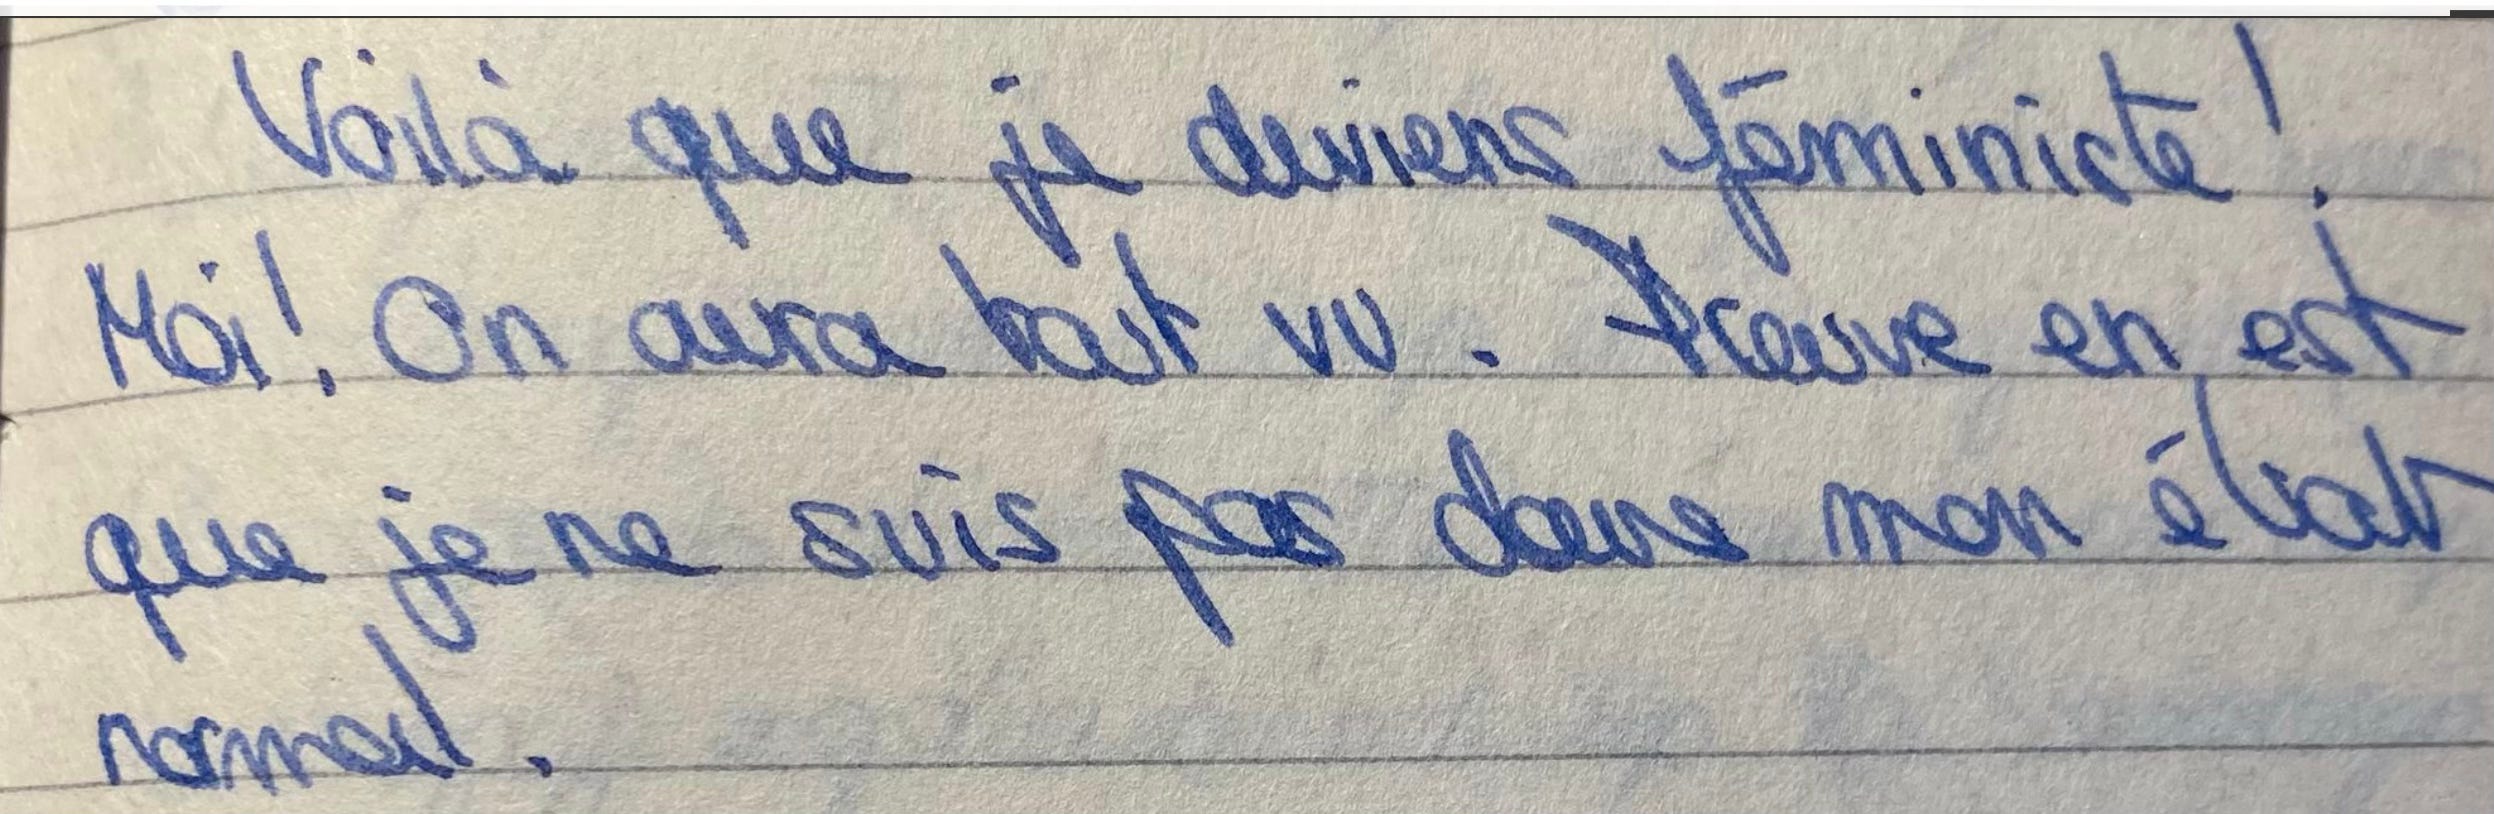 Voilà que je deviens féministe !
Moi ! On aura tout vu. Preuve en est
que je ne suis pas dans mon état
normal.